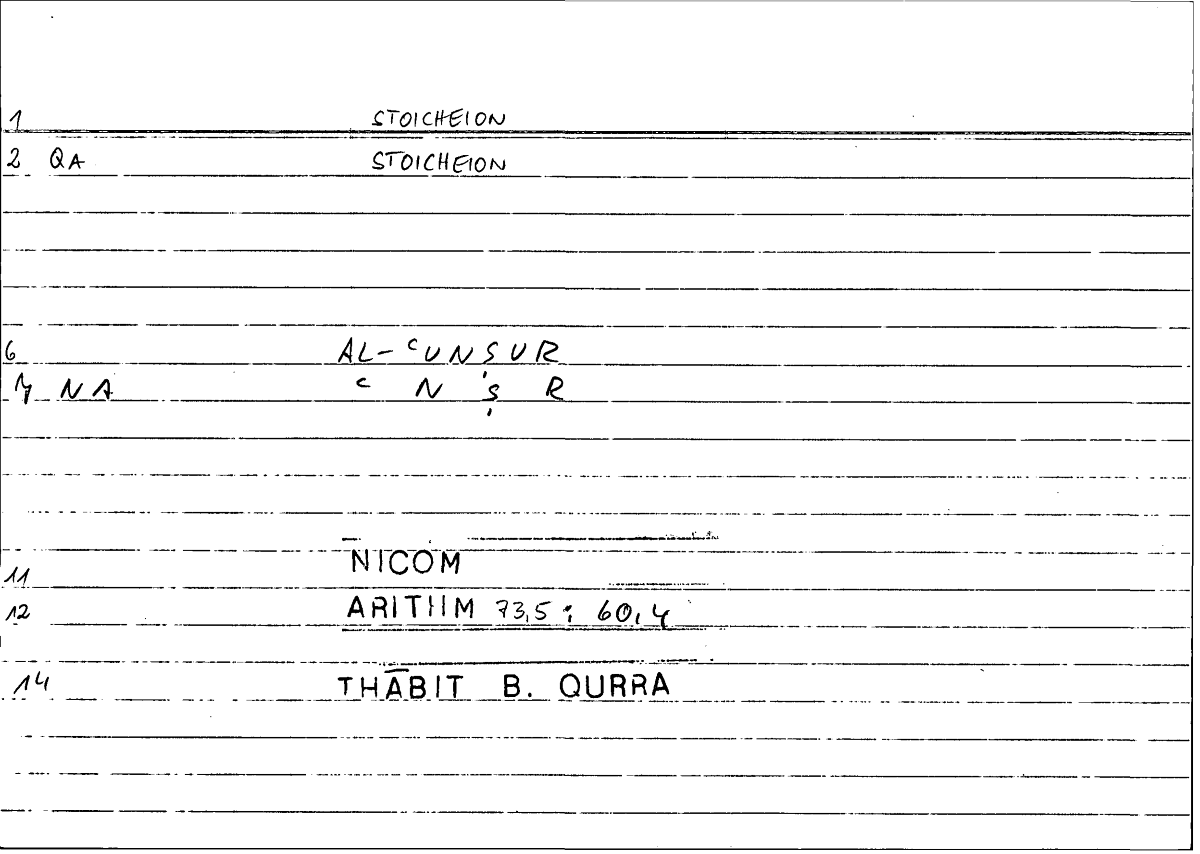 1 STOICHEION
2 QA STOICHEION
6 AL-ᶜUNSUR
7 NA ᶜ N Ṣ R
11 NICOM
12 ARITHM 73,5 ; 60,4
14 THĀBIT B. QURRA